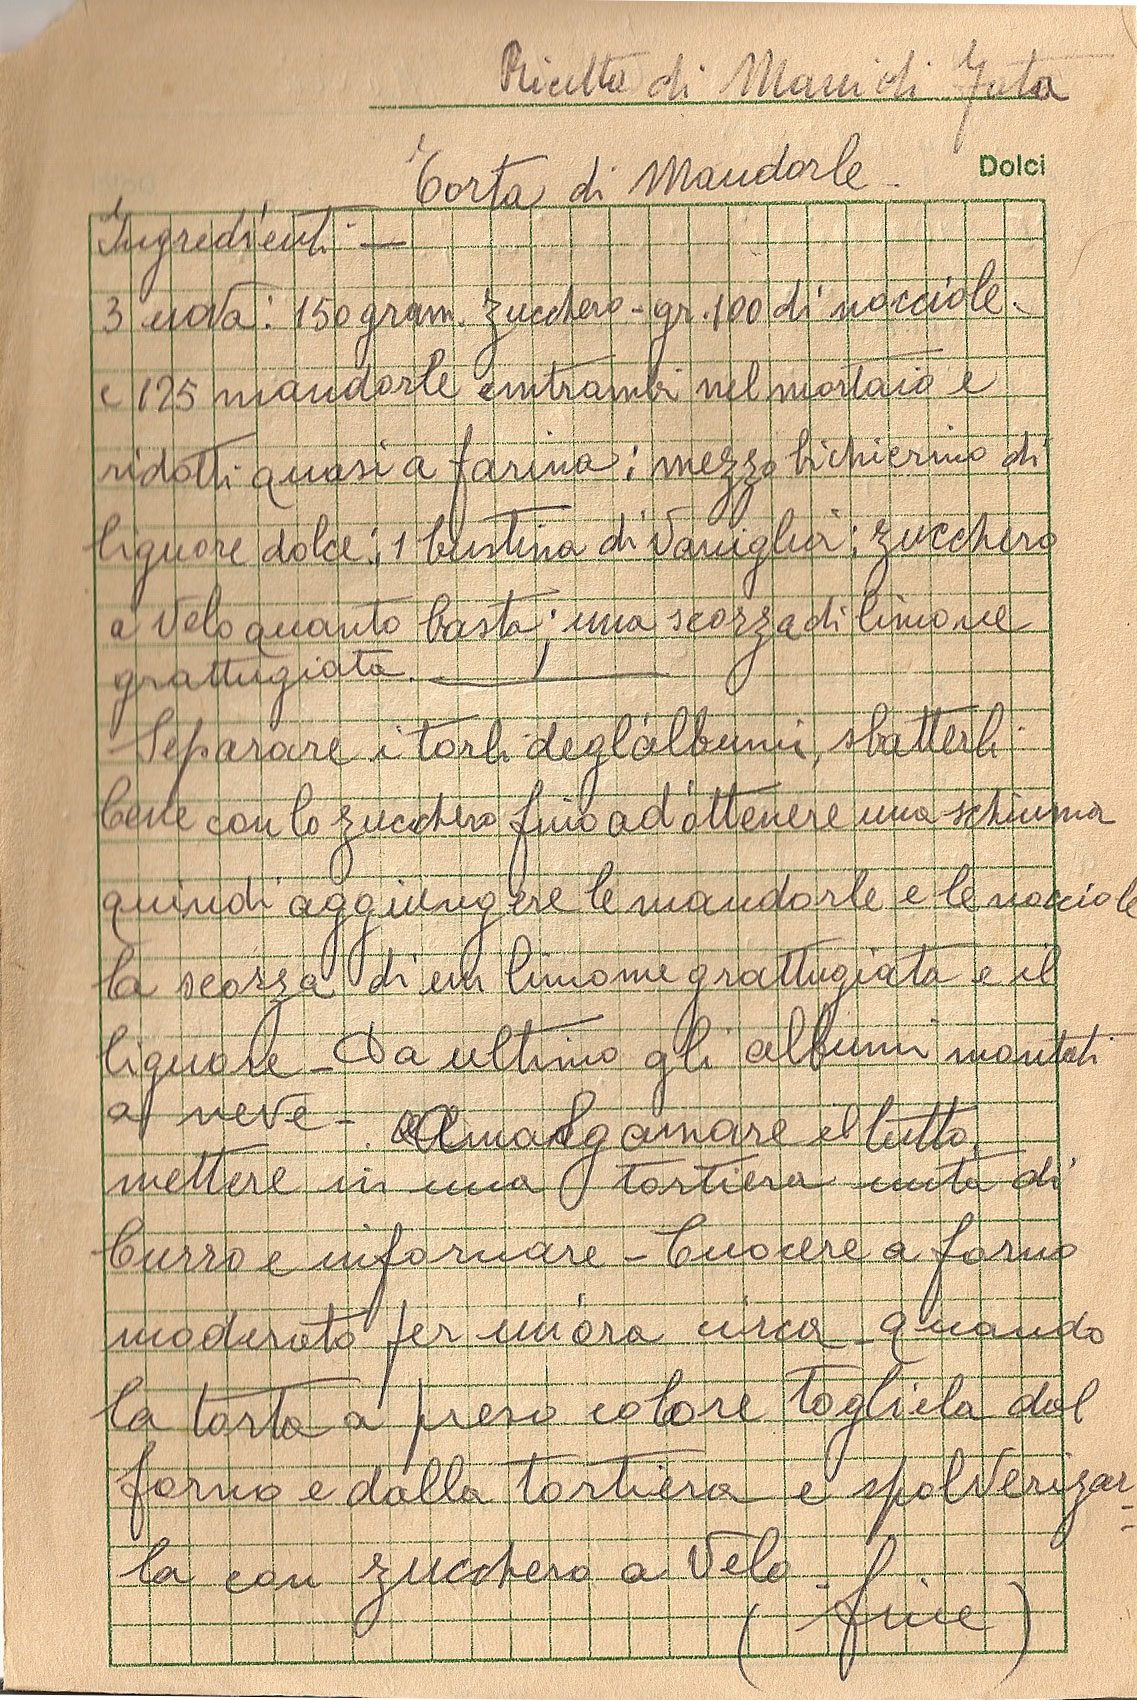 Ricette di Mani di Fata
Dolci
Torta di Mandorle -
Ingredienti -
3 uova: 150 gram. zucchero - gr. 100 di nocciole -
e 125 mandorle entrambi nel mortaio e
ridotti quasi a farina; mezzo bichierino di
liquore dolce; 1 bustina di Vaniglia; zucchero
a Velo quanto basta; una scorza di limone
grattugiata.
Separare i torli degl'albumi, sbatterli
bene con lo zucchero fino ad'ottenere una schiuma
quindi aggiungere le mandorle e le nocciole
la scorza di un limone grattugiata e il
liquore - Da ultimo gli albumi montati
a neve - Amalgamare il tutto,
mettere in una tortiera unta di
burro e infornare - Cuocere a forno
moderato per un'ora circa - quando
la torta a preso colore toglierla dal
forno e dalla tortiera e spolverizar=
la con zucchero a Velo -
( fine )